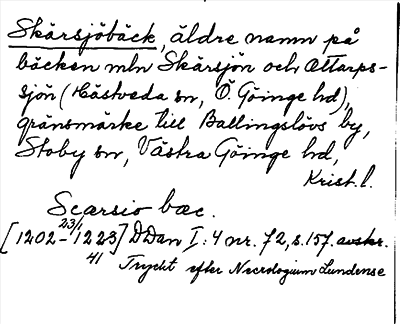 Skärsjöbäck, äldre namn på
bäcken mln Skärsjön och Ottarps-
sjön (Hästveda sn, Ö. Göinge hd),
gränsmärke till Ballingslövs by,
Stoby sn, Västra Göinge hd,
Krist. l.
Scærsio bæc.
23/1
[1202-1223] DDan I:4 nr. 72, s. 157. avskr.
41
Tryckt efter Necrologium Lundense